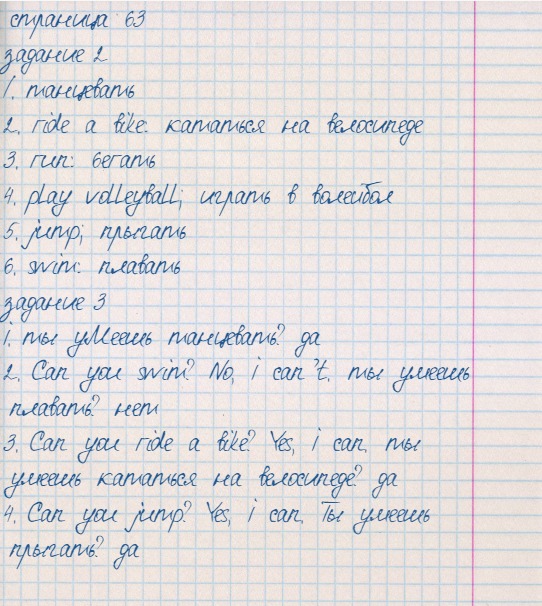 страница 63
задание 2
1. танцевать
2. ride a bike: кататься на велосипеде
3. run: бегать
4. play volleyball; играть в волейбол
5. jump; прыгать
6. swim: плавать
задание 3
1. ты умеешь танцевать? да
2. Can you swim? No, i can't. ты умеешь
плавать? нет
3. Can you ride a bike? Yes, i can. ты
умеешь кататься на велосипеде? да
4. Can you jump? Yes, i can. Ты умеешь
прыгать? да